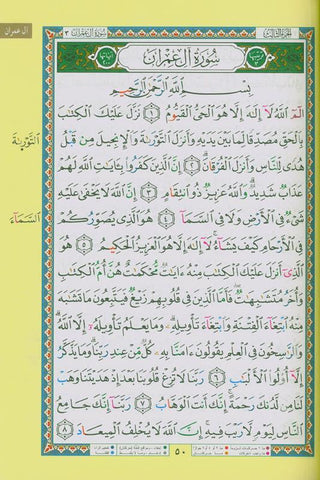 آل عمران
سُورَةُ آلِ عِمْرَانَ ٣
الجزء الثالث
سُورَةُ آلِ عِمْرَانَ
بِسْمِ اللَّهِ الرَّحْمَٰنِ الرَّحِيمِ
الٓمٓ اللَّهُ لَآ إِلَٰهَ إِلَّا هُوَ الْحَيُّ الْقَيُّومُ ١ نَزَّلَ عَلَيْكَ الْكِتَٰبَ
بِالْحَقِّ مُصَدِّقًا لِّمَا بَيْنَ يَدَيْهِ وَأَنزَلَ التَّوْرَىٰةَ وَالْإِنجِيلَ مِن قَبْلُ
التَّوْرَىٰةَ
هُدًى لِّلنَّاسِ وَأَنزَلَ الْفُرْقَانَ ٢ إِنَّ الَّذِينَ كَفَرُوا بِـَٔايَٰتِ اللَّهِ لَهُمْ
عَذَابٌ شَدِيدٌ وَاللَّهُ عَزِيزٌ ذُو انتِقَامٍ ٣ إِنَّ اللَّهَ لَا يَخْفَىٰ عَلَيْهِ
شَيْءٌ فِي الْأَرْضِ وَلَا فِي السَّمَآءِ ٤ هُوَ الَّذِي يُصَوِّرُكُمْ
السَّمَآءِ
فِي الْأَرْحَامِ كَيْفَ يَشَآءُ لَآ إِلَٰهَ إِلَّا هُوَ الْعَزِيزُ الْحَكِيمُ ٥ هُوَ
الَّذِيٓ أَنزَلَ عَلَيْكَ الْكِتَٰبَ مِنْهُ ءَايَٰتٌ مُّحْكَمَٰتٌ هُنَّ أُمُّ الْكِتَٰبِ
وَأُخَرُ مُتَشَٰبِهَٰتٌ فَأَمَّا الَّذِينَ فِي قُلُوبِهِمْ زَيْغٌ فَيَتَّبِعُونَ مَا تَشَٰبَهَ
مِنْهُ ابْتِغَآءَ الْفِتْنَةِ وَابْتِغَآءَ تَأْوِيلِهِ وَمَا يَعْلَمُ تَأْوِيلَهُ إِلَّا اللَّهُ
وَالرَّٰسِخُونَ فِي الْعِلْمِ يَقُولُونَ ءَامَنَّا بِهِ كُلٌّ مِّنْ عِندِ رَبِّنَا وَمَا يَذَّكَّرُ
إِلَّآ أُولُوا الْأَلْبَٰبِ ٦ رَبَّنَا لَا تُزِغْ قُلُوبَنَا بَعْدَ إِذْ هَدَيْتَنَا وَهَبْ
لَنَا مِن لَّدُنكَ رَحْمَةً إِنَّكَ أَنتَ الْوَهَّابُ ٧ رَبَّنَآ إِنَّكَ جَامِعُ
النَّاسِ لِيَوْمٍ لَّا رَيْبَ فِيهِ إِنَّ اللَّهَ لَا يُخْلِفُ الْمِيعَادَ ٨
٥٠